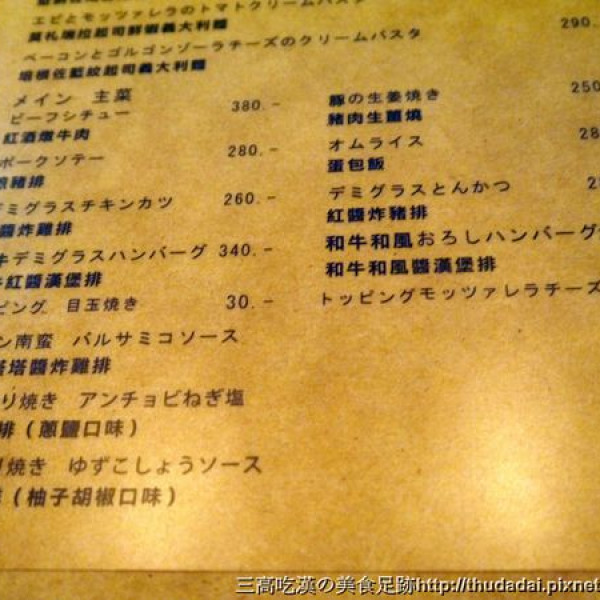 エビとモッツァレラのトマトクリームパスタ
莫札瑞拉起司鮮蝦義大利麵
290.
ベーコンとゴルゴンゾーラチーズのクリームパスタ
培根佐藍紋起司義大利麵
メイン 主菜
ビーフシチュー 380.-
紅酒燉牛肉
ポークソテー 280.-
豬排
デミグラスチキンカツ 260.-
醬炸雞排
牛デミグラスハンバーグ 340.-
紅醬漢堡排
ピング 目玉焼き 30.-
ン南蛮 バルサミコソース
塔塔醬炸雞排
り焼き アンチョビねぎ塩
排（蔥鹽口味）
焼き ゆずこしょうソース
（柚子胡椒口味）
豚の生姜焼き 250
豬肉生薑燒
オムライス 28
蛋包飯
デミグラスとんかつ 2
紅醬炸豬排
和牛和風おろしハンバーグ
和牛和風醬漢堡排
トッピングモッツァレラチーズ
三高吃漢の美食足跡http://thudadai.pixnet